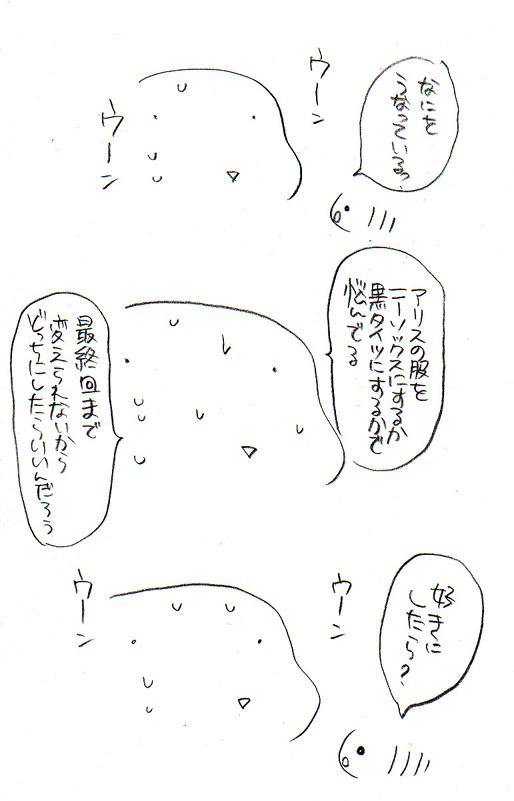 なにを
うなっている?
ウーン
ウーン
アリスの服を
ニーソックスにするか
黒タイツにするかで
悩んでる
最終回まで
変えられないから
どっちにしたらいいんだろう
好きに
したら?
ウーン
ウーン